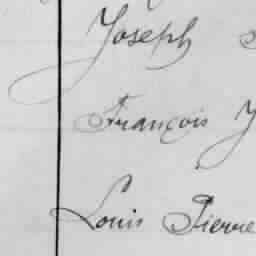 Joseph
François
Louis Pierre